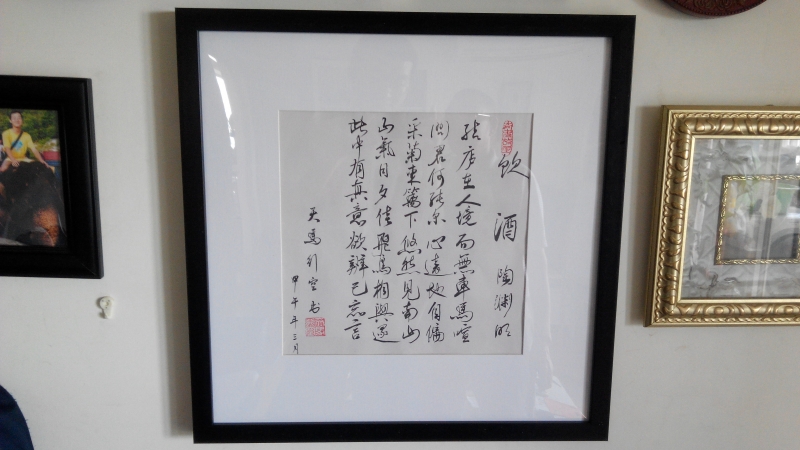 饮酒 陶渊明
结庐在人境而無車馬喧
问君何能尔心遠地自偏
采菊東篱下悠然見南山
山氣日夕佳飛鳥相與還
此中有真意欲辯已忘言
天馬行空书
甲午年三月